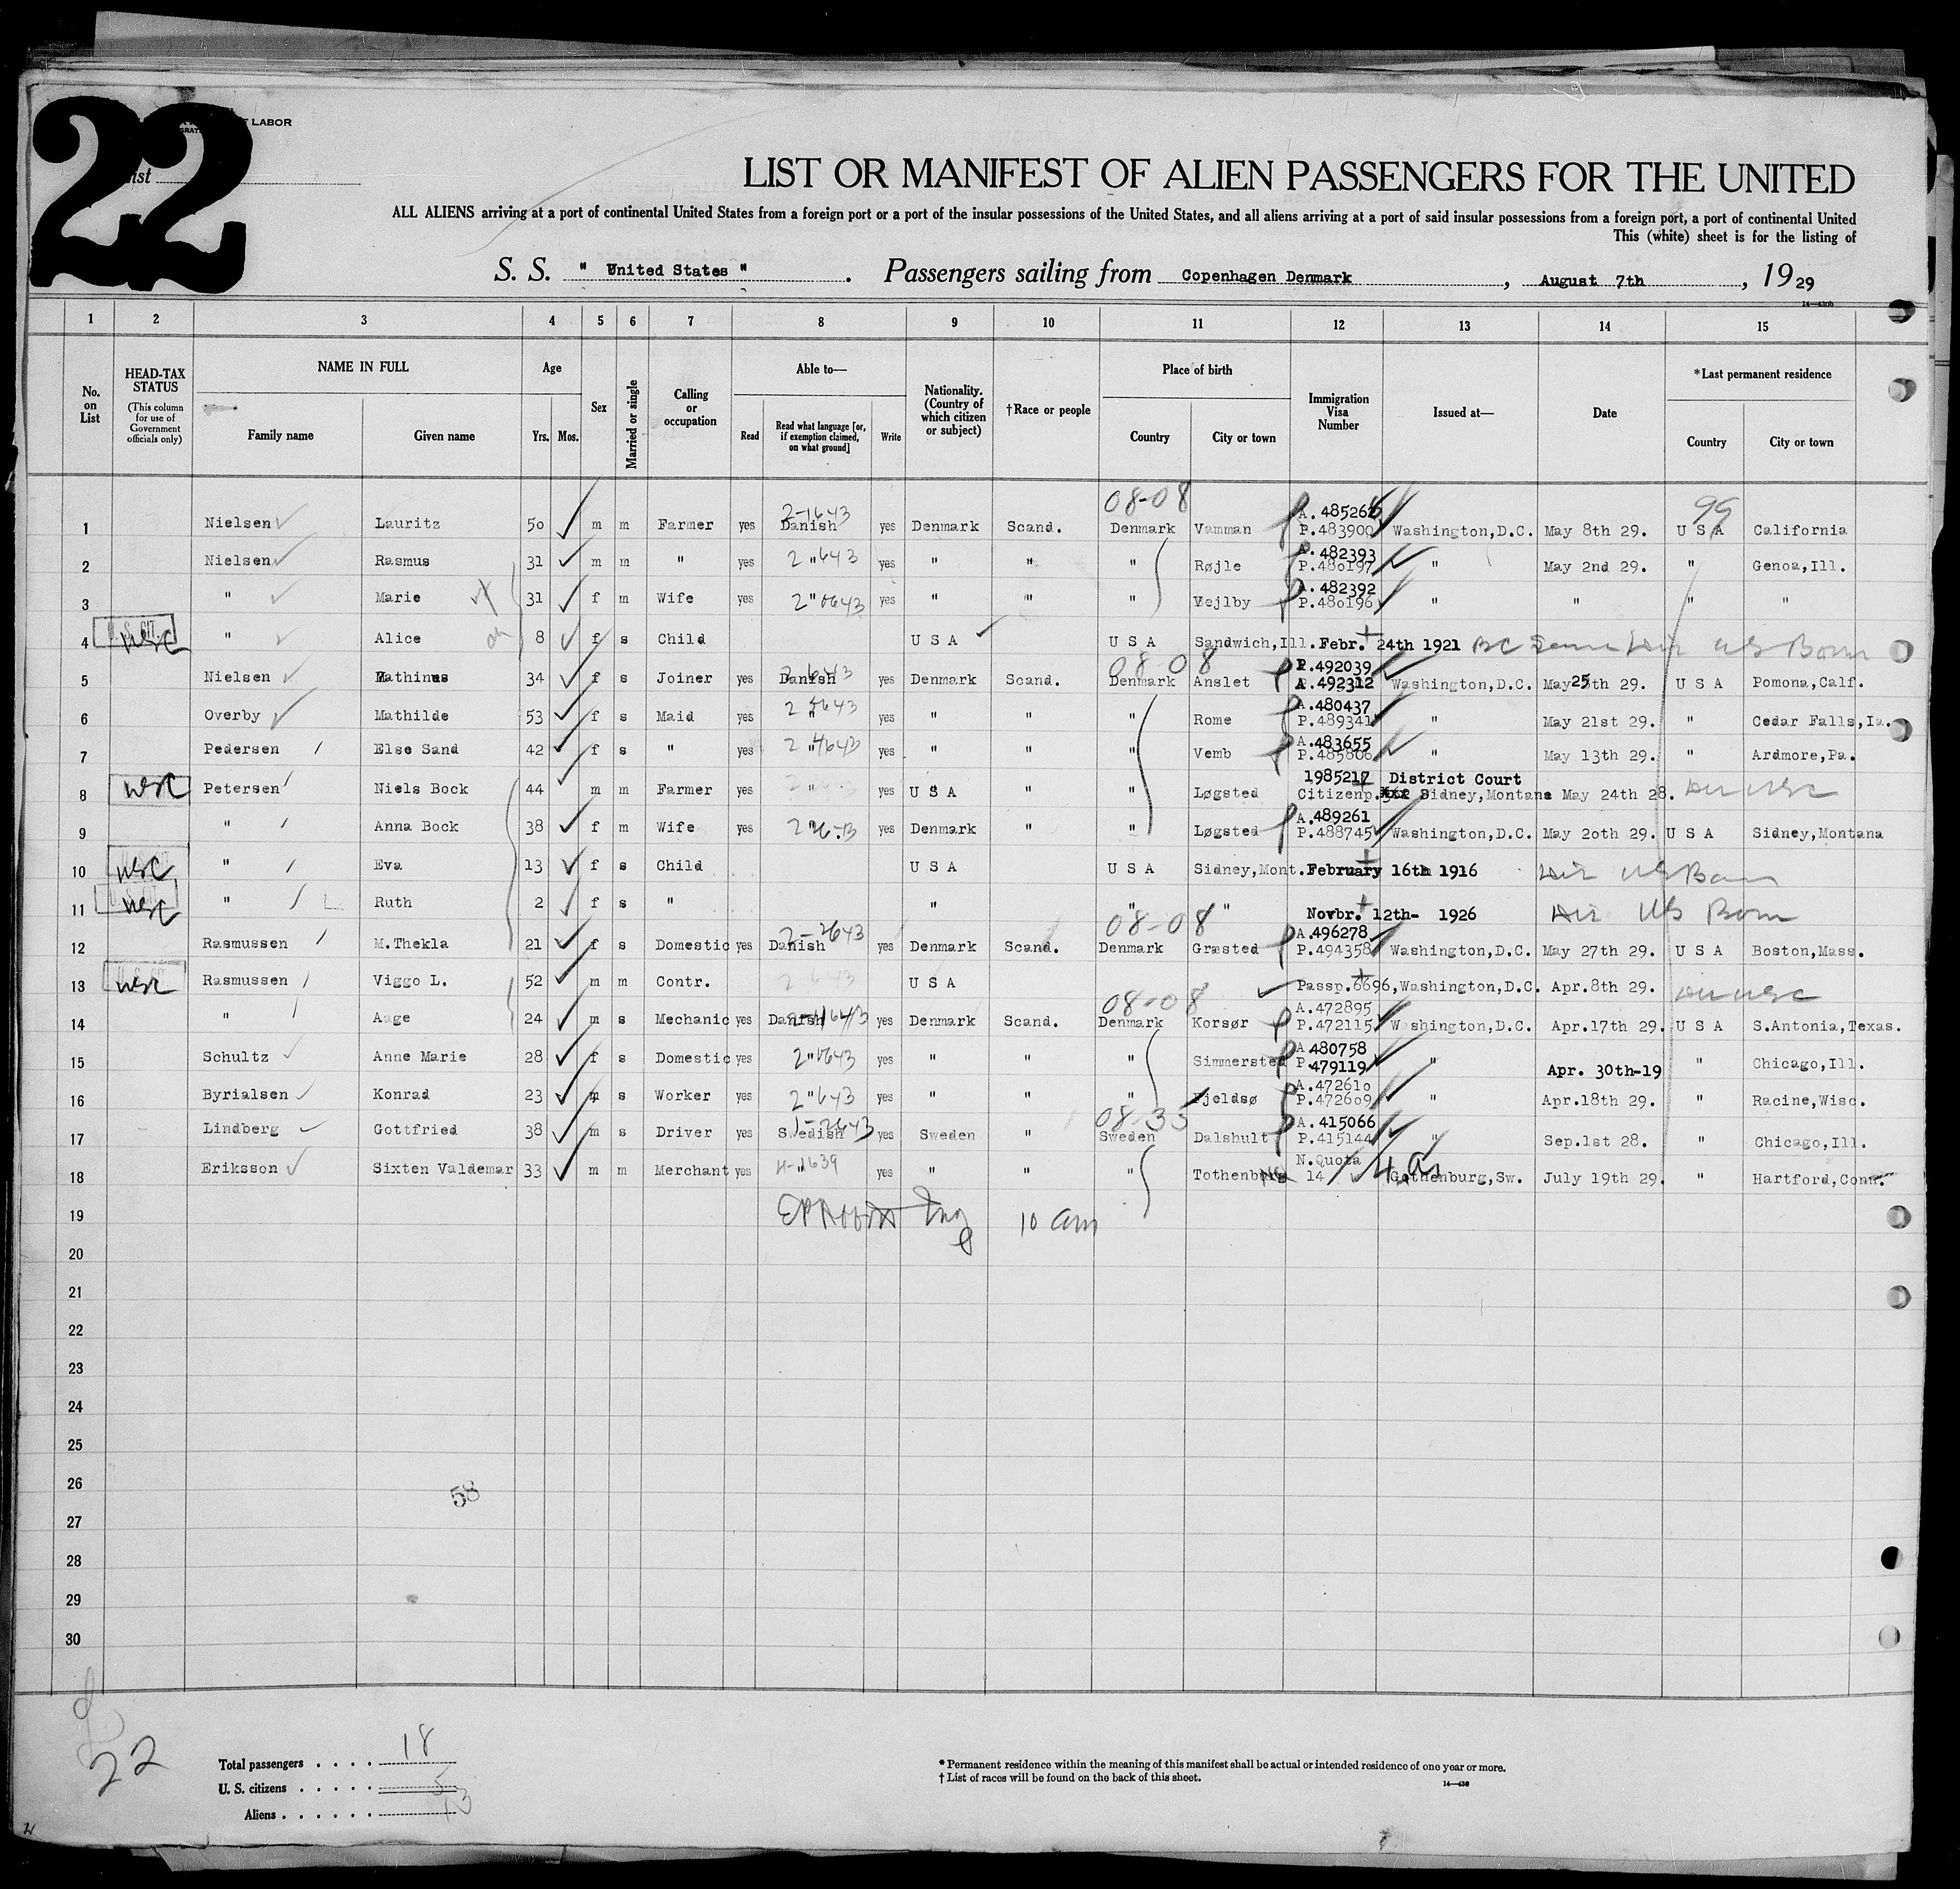 22
LABOR
LIST OR MANIFEST OF ALIEN PASSENGERS FOR THE UNITED
ALL ALIENS arriving at a port of continental United States from a foreign port or a port of the insular possessions of the United States, and all aliens arriving at a port of said insular possessions from a foreign port, a port of continental United
This (white) sheet is for the listing of
S. S. " United States ". Passengers sailing from Copenhagen Denmark, August 7th, 1929
14—430b
1 2 3 4 5 6 7 8 9 10 11 12 13 14 15
No. on List
HEAD-TAX STATUS
(This column for use of Government officials only)
NAME IN FULL
Family name Given name
Age
Yrs. Mos.
Sex
Married or single
Calling or occupation
Able to—
Read Read what language [or, if exemption claimed, on what ground] Write
Nationality. (Country of which citizen or subject)
†Race or people
Place of birth
Country City or town
Immigration Visa Number
Issued at—
Date
*Last permanent residence
Country City or town
08-08 99
1 Nielsen Lauritz 50 m m Farmer yes Danish yes Denmark Scand. Denmark Vamman P.483900 Washington,D.C. May 8th 29. U S A California
2 Nielsen Rasmus 31 m m " yes " yes " " " Røjle A.482393 P.480197 " May 2nd 29. " Genoa,Ill.
3 " Marie 31 f m Wife yes " yes " " " Vejlby A.482392 P.480196 " " " "
4 " Alice 8 f s Child U S A U S A Sandwich,Ill. Febr. 24th 1921 US Born
08-08
5 Nielsen Mathinus 34 f s Joiner yes Danish yes Denmark Scand. Denmark Anslet P.492039 A.492312 Washington,D.C. May25th 29. U S A Pomona,Calf.
6 Overby Mathilde 53 f s Maid yes " yes " " " Rome A.480437 P.489341 " May 21st 29. " Cedar Falls,Ia.
7 Pedersen Else Sand 42 f s " yes " yes " " " Vemb A.483655 P.485806 " May 13th 29. " Ardmore,Pa.
8 Petersen Niels Bock 44 m m Farmer yes " yes U S A " " Løgsted 1985217 District Court Citizenp. Sidney,Montana May 24th 28.
9 " Anna Bock 38 f m Wife yes " yes Denmark " " Løgsted A.489261 P.488745 Washington,D.C. May 20th 29. U S A Sidney,Montana
10 " Eva 13 f s Child U S A U S A Sidney,Mont. February 16th 1916 US Born
11 " Ruth 2 f s " " " " Novbr. 12th- 1926 US Born
08-08
12 Rasmussen M.Thekla 21 f s Domestic yes Danish yes Denmark Scand. Denmark Græsted A.496278 P.494358 Washington,D.C. May 27th 29. U S A Boston,Mass.
13 Rasmussen Viggo L. 52 m m Contr. U S A Passp.6696,Washington,D.C. Apr.8th 29.
08-08
14 " Aage 24 m s Mechanic yes Danish yes Denmark Scand. Denmark Korsør A.472895 P.472115 Washington,D.C. Apr.17th 29. U S A S.Antonia,Texas.
15 Schultz Anne Marie 28 f s Domestic yes " yes " " " Simmersted A 480758 P.479119 " Apr. 30th-19 " Chicago,Ill.
16 Byrialsen Konrad 23 m s Worker yes " yes " " " Fjeldsø A.472610 P.472609 " Apr.18th 29. " Racine,Wisc.
08-33
17 Lindberg Gottfried 38 m s Driver yes Swedish yes Sweden " Sweden Dalshult A.415066 P.415144 " Sep.1st 28. " Chicago,Ill.
18 Eriksson Sixten Valdemar 33 m m Merchant yes " yes " " " N.Quota 14 Gothenburg,Sw. July 19th 29. " Hartford,Conn.
19 10 am
20
21
22
23
24
25
26
58
27
28
29
30
22
Total passengers . . . . 18
U. S. citizens . . . . . 5
Aliens . . . . . . 13
*Permanent residence within the meaning of this manifest shall be actual or intended residence of one year or more.
†List of races will be found on the back of this sheet.
14—430